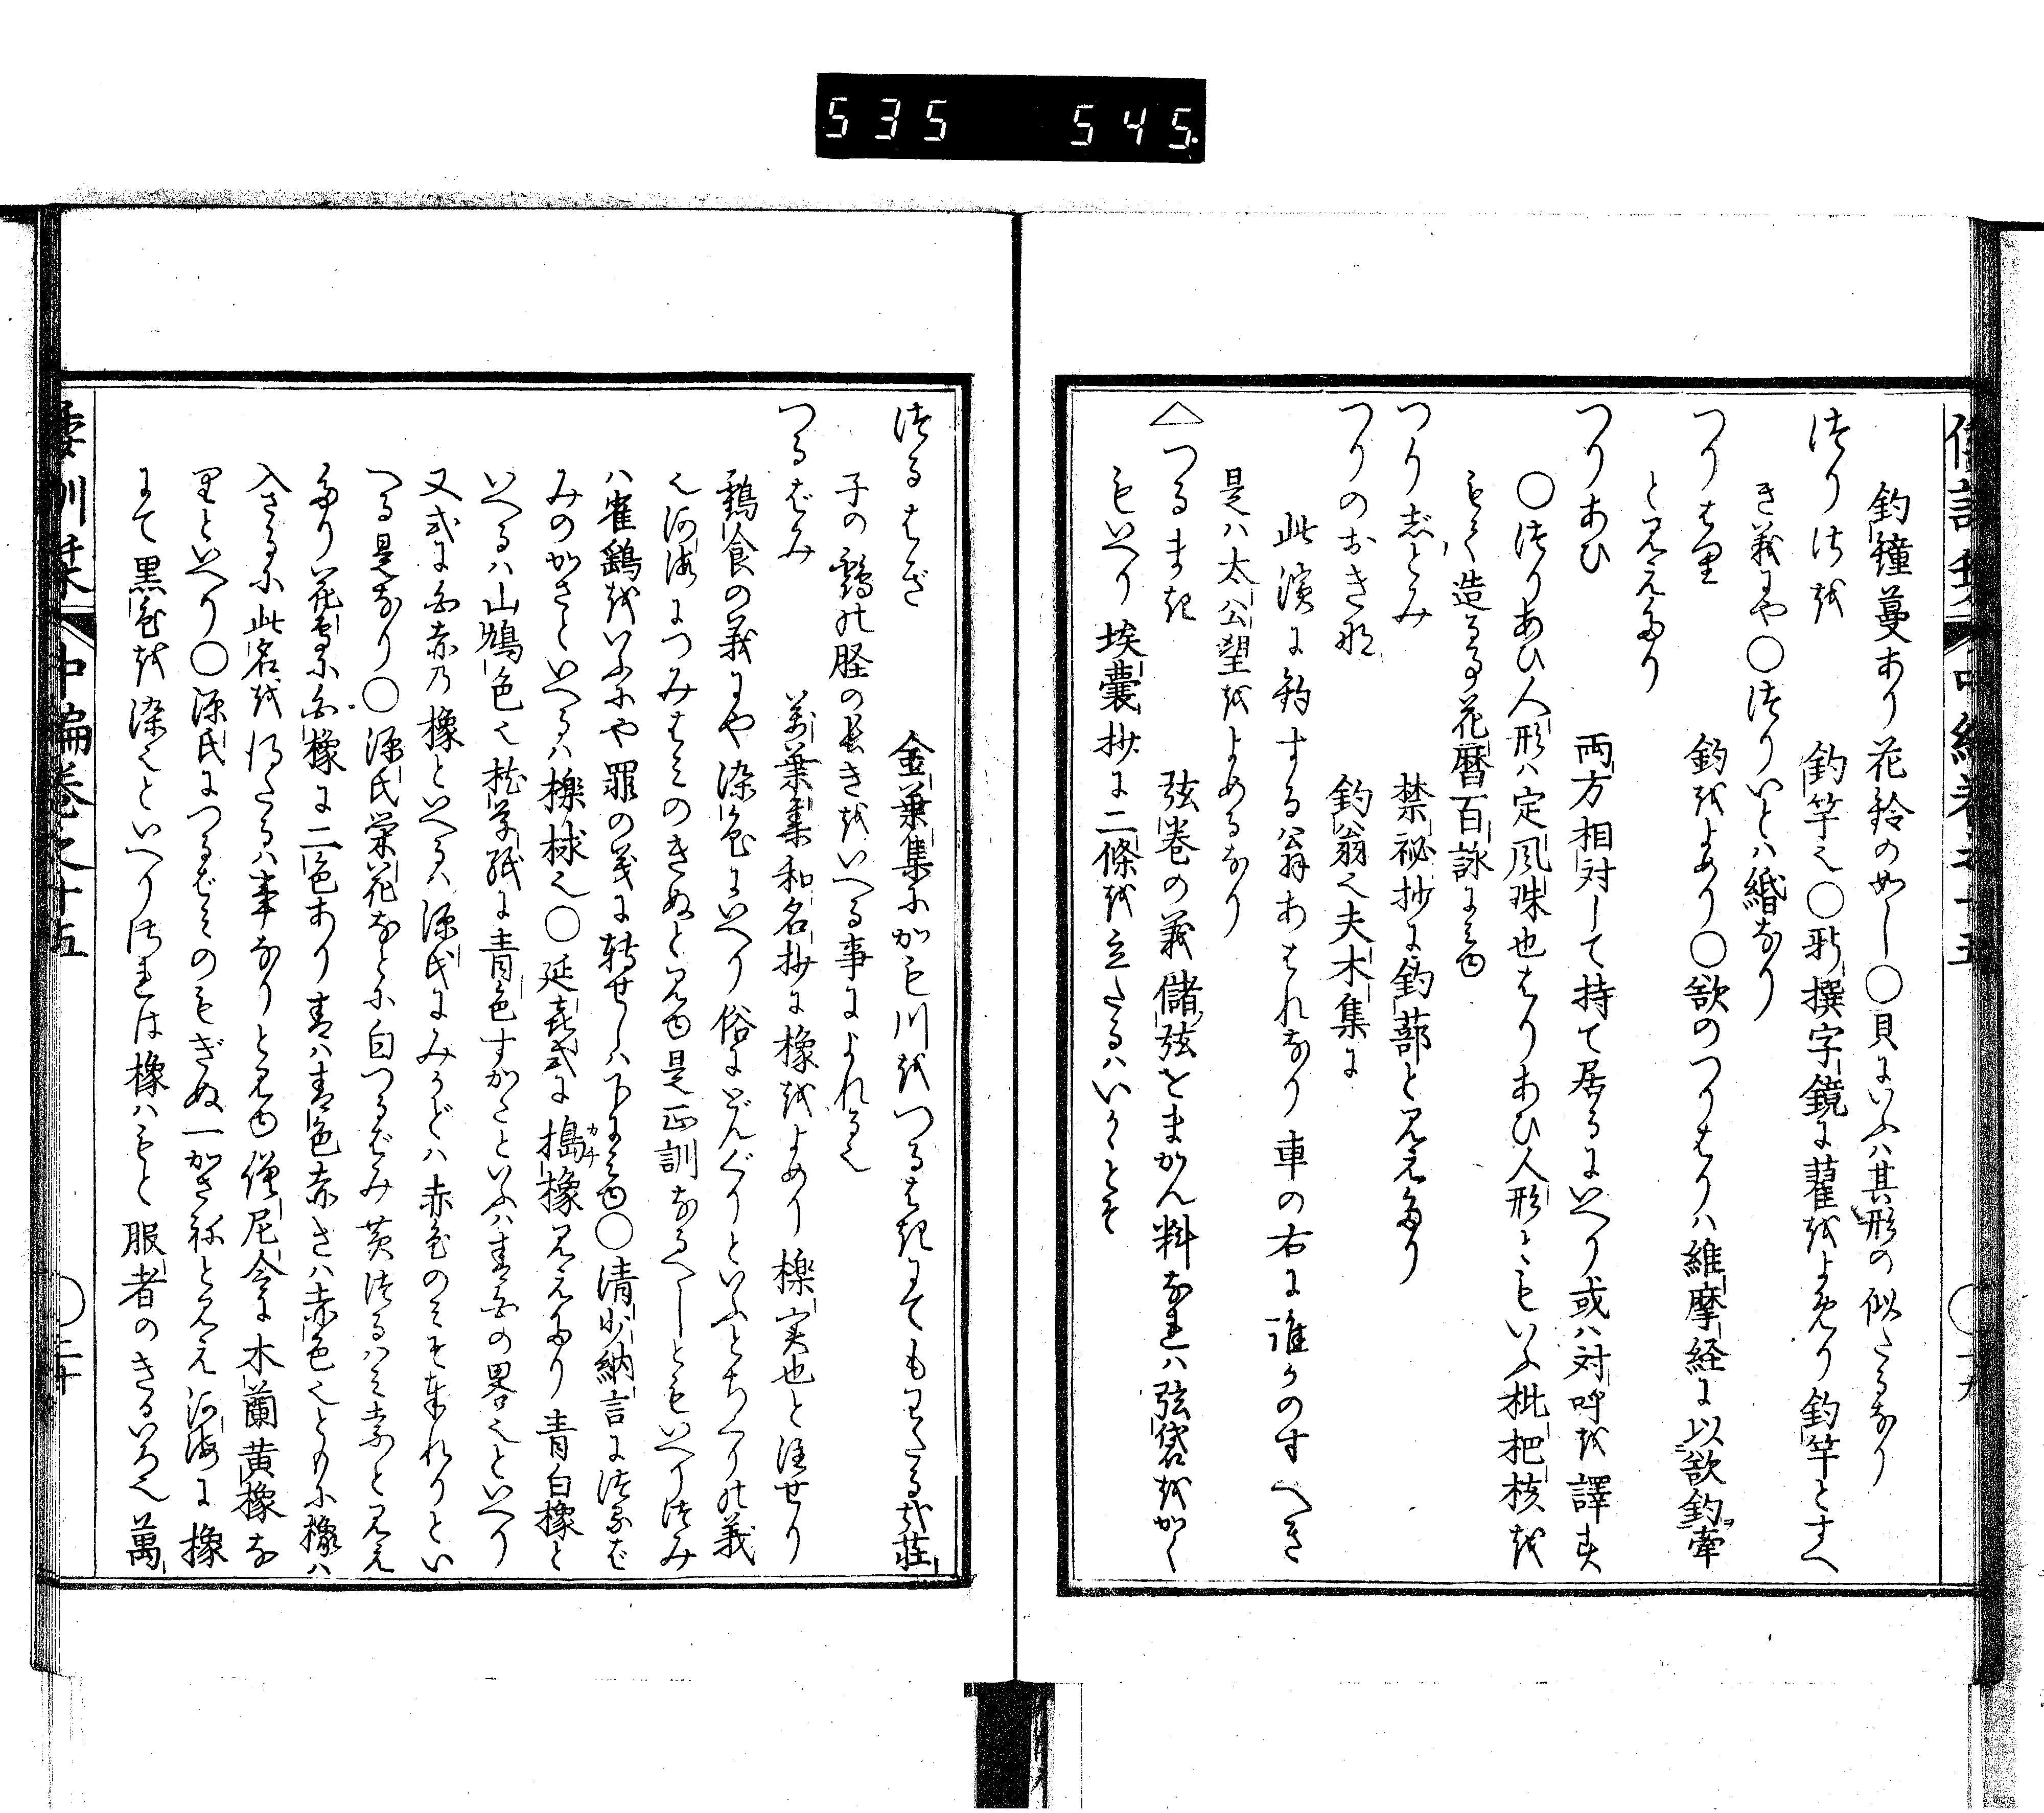 535 545
釣鐘蔓あり花鈴の如し〇貝にいふハ其形の似たるなり
つりさを 釣竿也〇新撰字鏡に藋をよめり釣竿とすへ
き義にや〇つりいとハ緡なり
つりはり 釣をよめり〇欲のつりはりハ維摩経に以欲釣牽
と見えたり
つりあひ 両方相対して持て居るにいへり或ハ対呼を譯す
〇つりあひ人形ハ定風珠也はりあひ人形ともいふ枇杷核を
もて造る事花暦百詠に見ゆ
つりしとみ 禁秘抄に釣蔀と見えたり
つりのおきな 釣翁也夫木集に
此濱に釣する翁あはれなり車の右に誰かのすへき
是ハ太公望をよめるなり
△つるまき 弦巻の義儲弦をまかん料なれハ弦袋をかく
もいへり埃嚢抄に二條を立たるハいかゝそ
つるはぎ 金葉集にかも川をつるはきにてもわたる哉荘
子の鶴の脛の長きをいへる事によれる也
つるばみ 萬葉集和名抄に橡をよめり櫟実也と注せり
鶏食の義にや染色にいへり俗にどんぐりといふとちくりの義
也河海につみはみのきぬと見ゆ是正訓なるへしともいへりつみ
ハ雀鷂をいふにや罪の義に転せしハ下に見ゆ〇清少納言につるば
みのかさといへるハ櫟梂也〇延喜式に搗橡見えたり青白橡と
いへるハ山鳩色也桃華紙に青色すがたといふハ青白の畧也といへり
又式に白赤乃橡といへるハ源氏にみかどハ赤色の見そ奉れりとい
へる是なり〇源氏栄花なとに白つるばみ黄つるハみなと見え
たり花鳥に白橡に二色あり青ハ青色赤きハ赤色也ともに橡ハ
入さるに此名を得たるハ本なりと見ゆ僧尼令に木蘭黄橡な
りといへり〇源氏につるばみのもぎぬ一かさねと見え河海に橡
にて黒色を染也といへりされは橡ハもと服者のきるいろ也萬
倭訓栞 中編巻之十五 〇二十